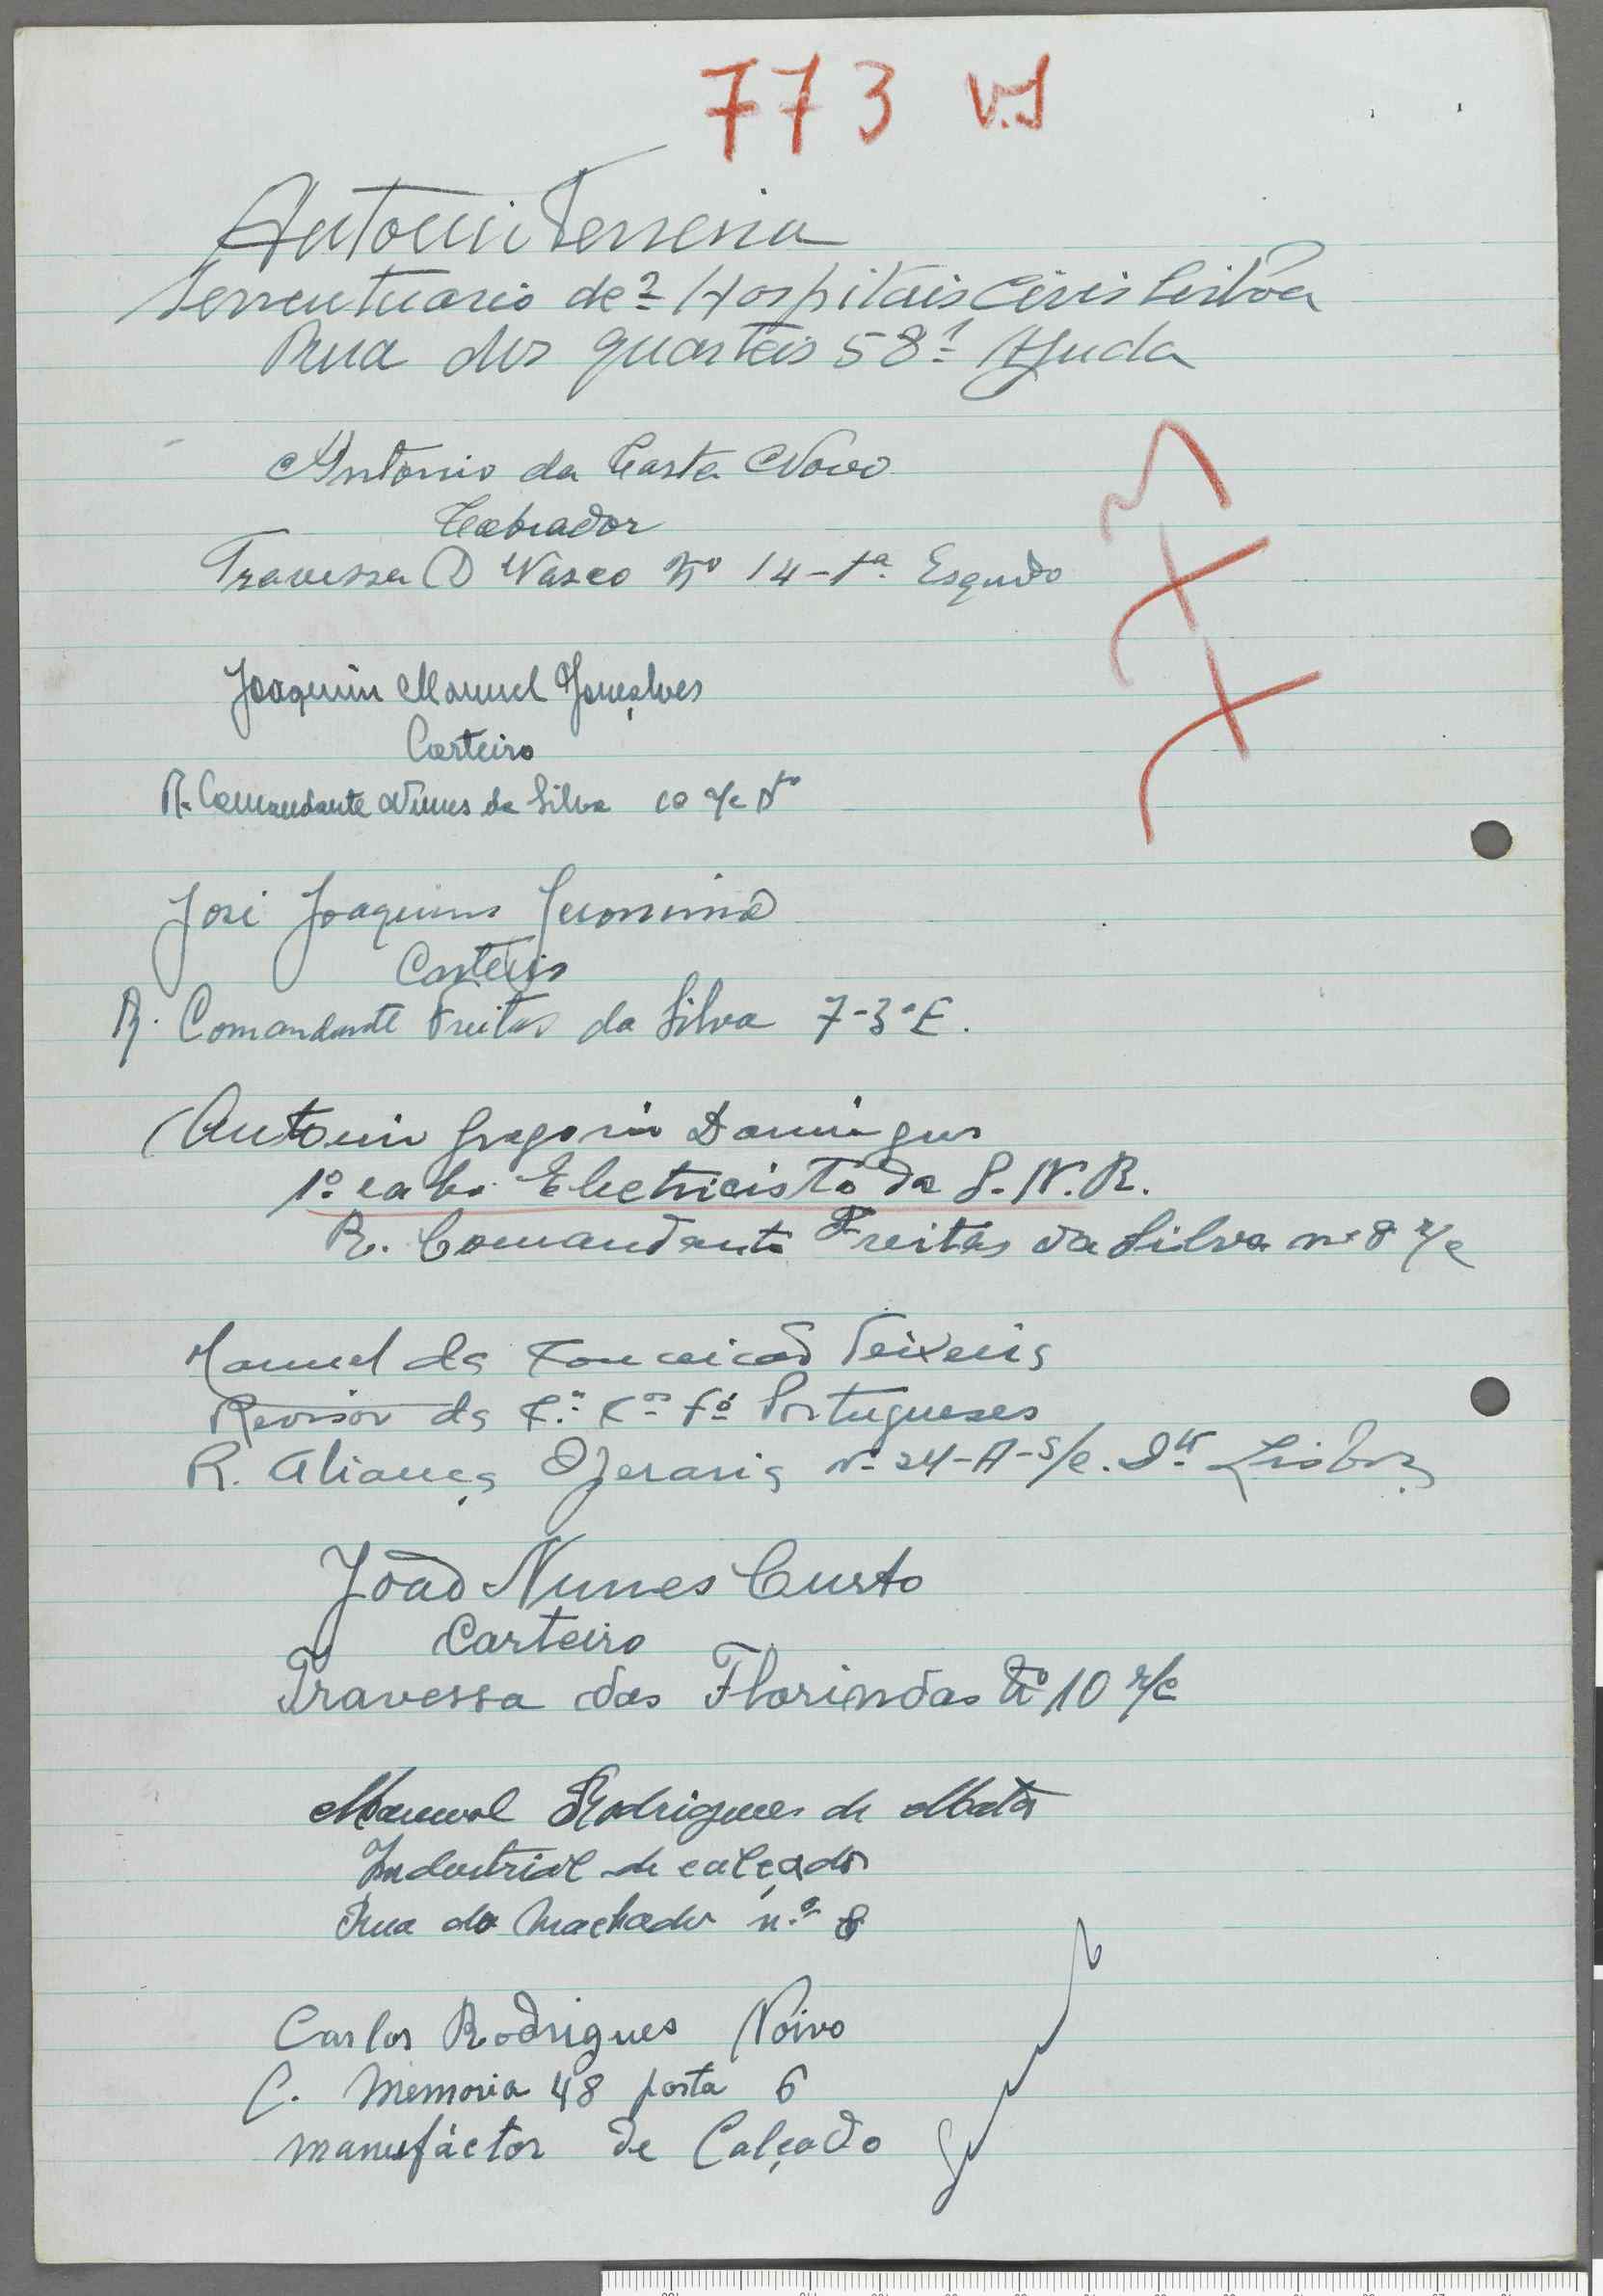 773 V.S
Antonio Ferreira
Serventuario de 2ª Hospitais Civis Lisboa
Rua dos quarteis 58 1º Ajuda
Antonio da Costa Novo
Cobrador
Travessa D Vasco Nº 14-1ª Esqudo
Joaquim Manuel Gonçalves
Carteiro
R. Comandante da Silva r/c Dto
José Joaquim Jeronimo
Carteiro
R. Comandante Freitas da Silva 7-3º E.
Antonio Gregorio Domingues
1º cabo Electricista da G.N.R.
R. Comandante Freitas da Silva nº 8 r/c
Manuel da Conceição Teixeira
Revisor da Portugueses
R. Aliança Operaria Nº 24-A-s/c. Dto Lisboa
João Nunes Custo
Carteiro
Travessa das Florindas Nº 10 r/c
Manuel Rodrigues da Mata
Industrial de calçado
Rua do Machado n.º 8
Carlos Rodrigues Noivo
C. Memoria 48 porta 6
manufáctor de Calçado